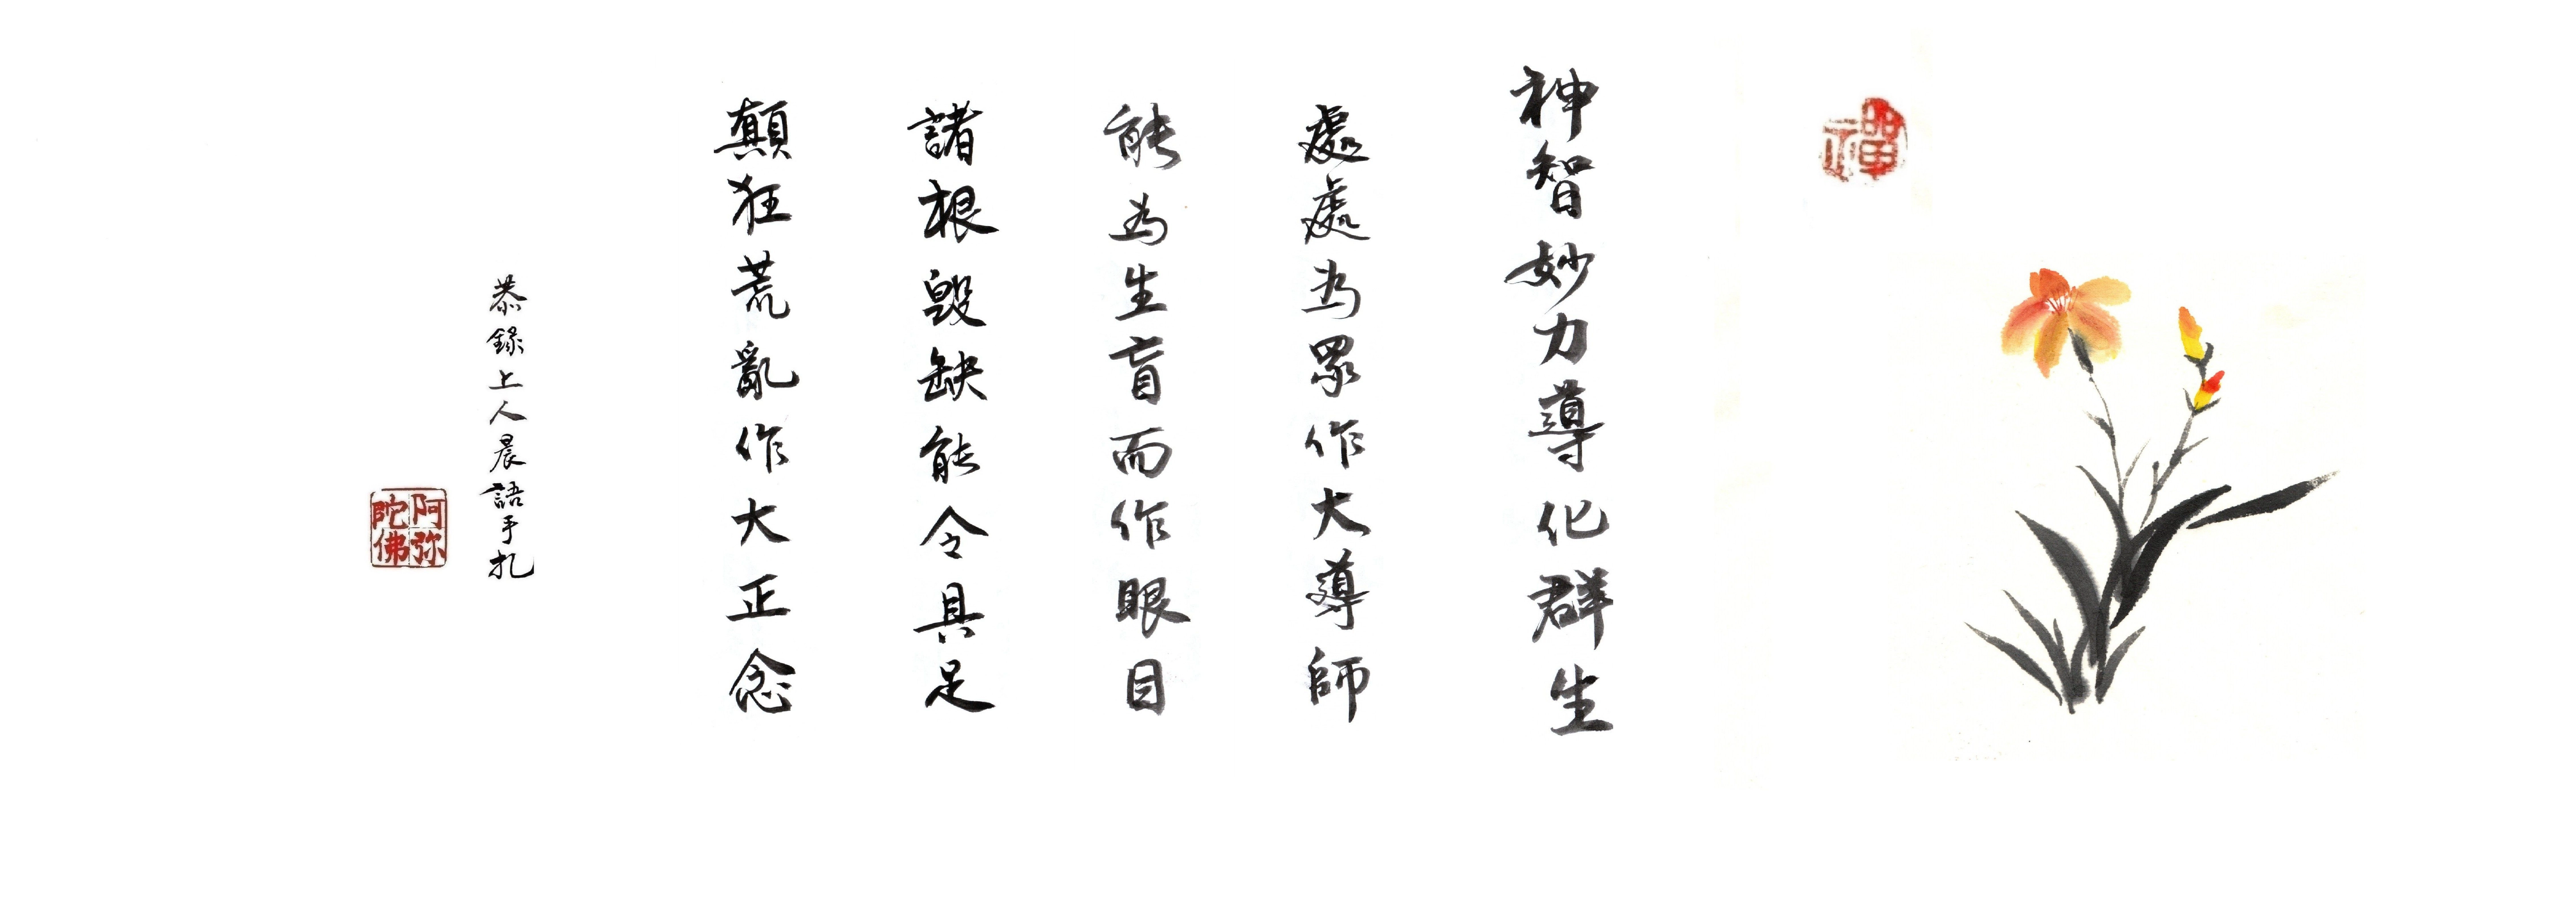 禪
神智妙力導化群生
處處為眾作大導師
能為生盲而作眼目
諸根毀缺能令具足
顛狂荒亂作大正念
恭錄上人晨語手札
阿弥
陀佛